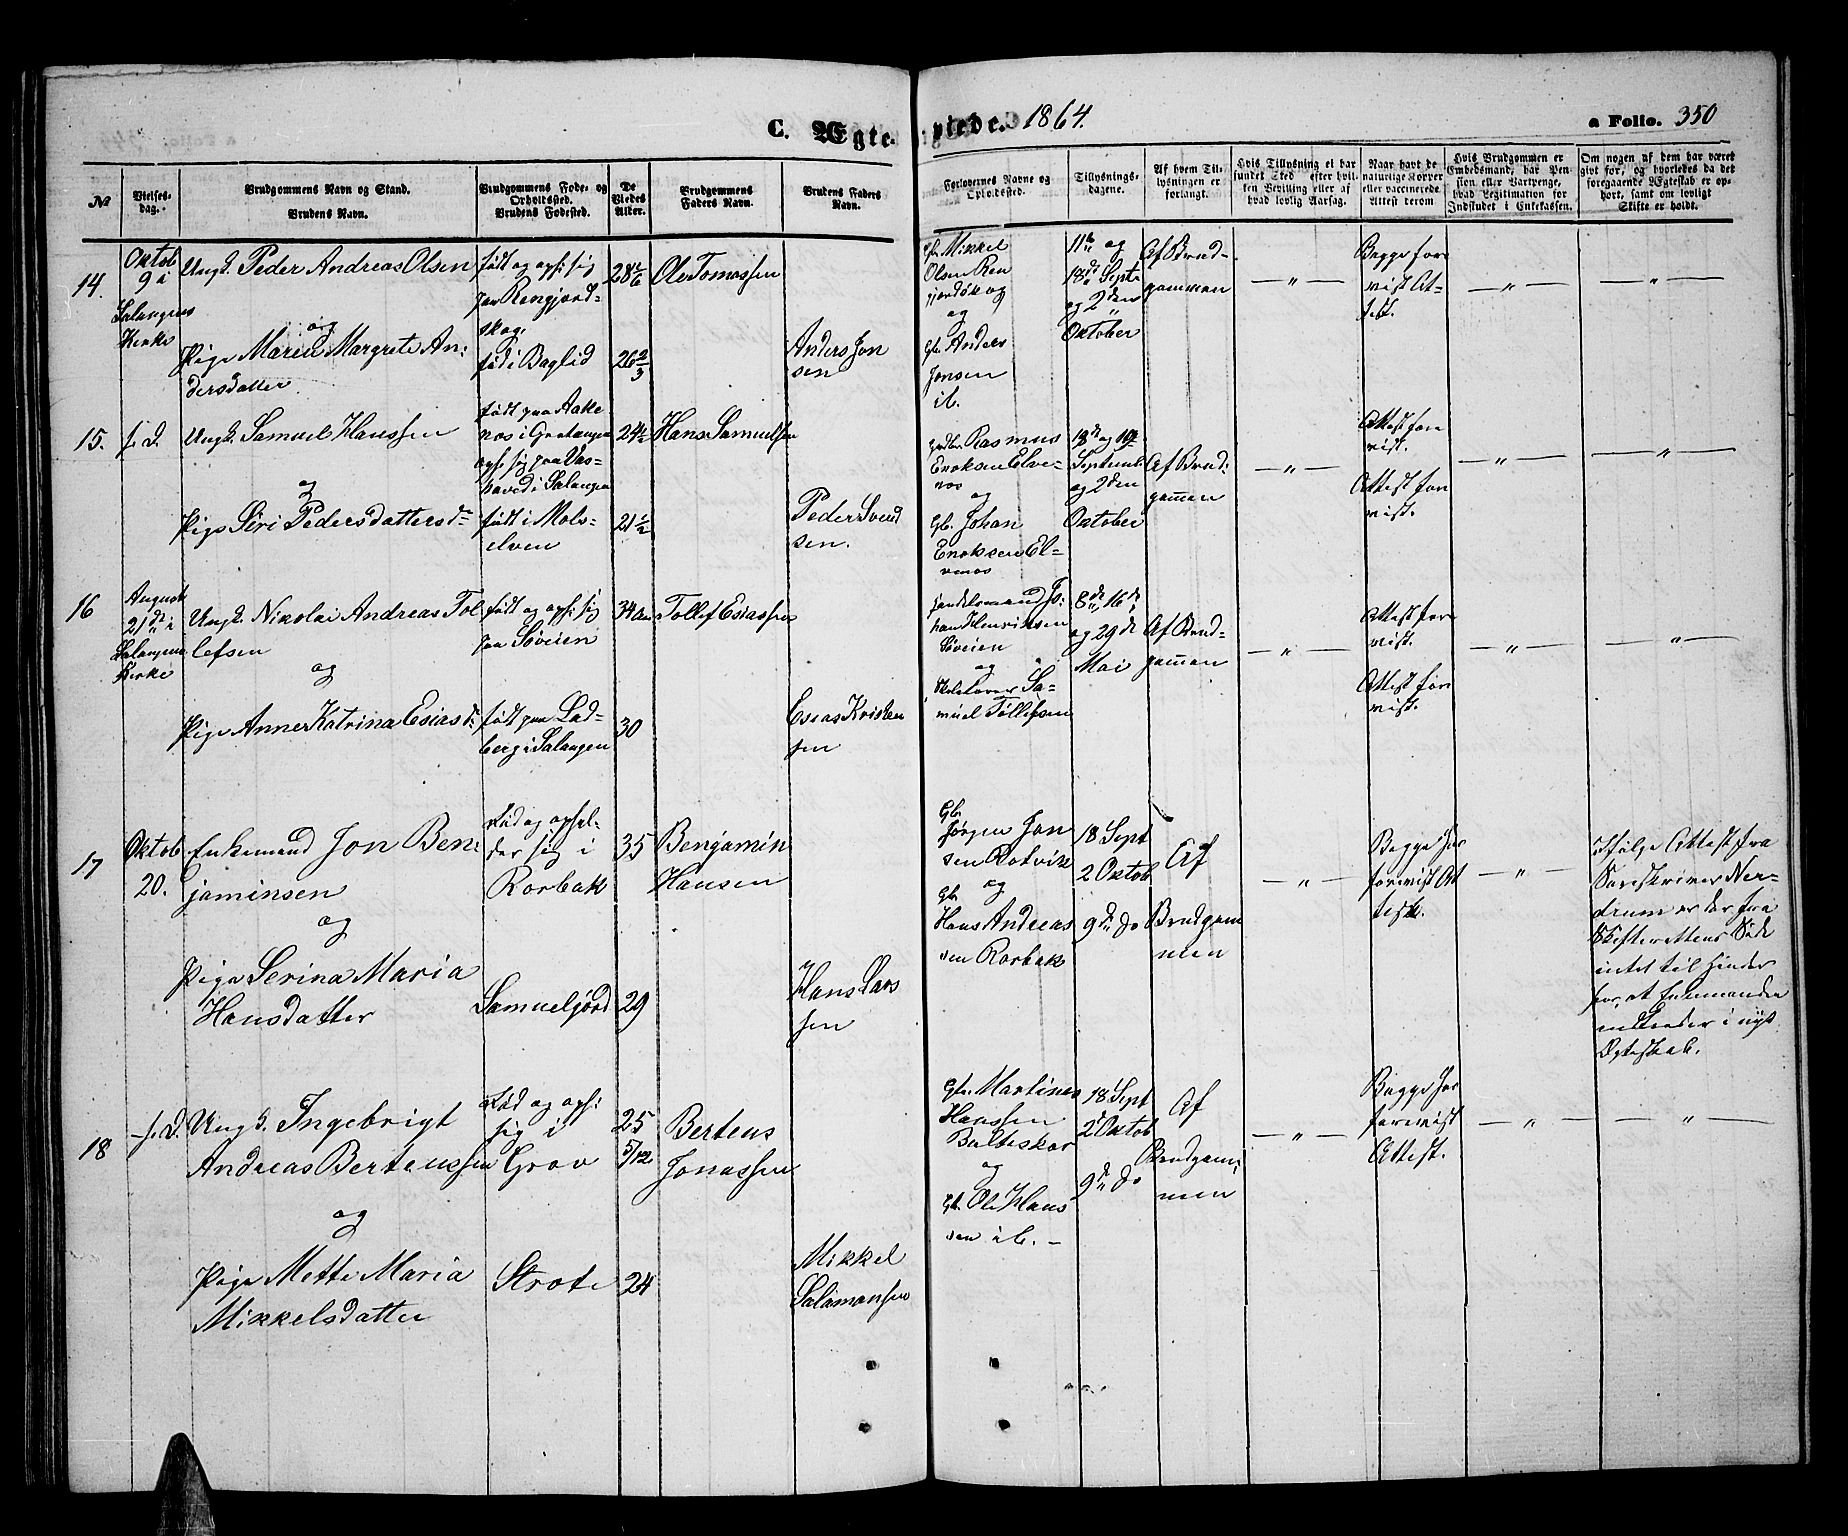 C. Ægteviede. 1864.
a Folio. 350
No
Vielses-
dag.
Brudgommens Navn og Stand.
Brudens Navn.
Brudgommens Føde- og
Opholtssted.
Brudens Fødested.
De
Viedes
Alder.
Brudgommens
Faders Navn.
Brudens Faders
Navn.
Forlovernes Navne og
Opholdssted.
Tillysnings-
dagene.
Af hvem Til-
lysningen er
forlangt.
Hvis Tillysning ei har
fundet Sted efter hvil-
ken Bevilling eller af
hvad lovlig Aarsag.
Naar havt de
naturlige Kopper
eller vaccinerede.
Attest derom
Hvis Brudgommen er
Embedsmand, har Pen-
sion eller Vartpenge,
hvad Legitimation for
Indskudet i Enkekassen.
Om nogen af dem har været
gift før, og hvorledes da det
foregaaende Ægteskab er op-
hørt, samt om lovligt
Skifte er holdt.
14.
Oktob
9 i
Salangens
Kirke
Ungk. Peder Andreas Olsen
og
Pige Maren Margrete An-
dersdatter
født og oph: sig
paa Rengjord-
skog.
født i Baglid
28 1/6
26 2/3
Ole Tomassen
Anders Jon
sen
Gb. Mikkel
Olsen Ren
gjordsk og
og
Gb. Anders
Jonsen
ib.
11te og
18de Septr
og 2den
Oktober
Af Brud-
gommen
— " —
Begge fore
vist At-
test.
— " —
— " —
15.
s. d.
Ungk. Samuel Hanssen
og
Pige Siri Pedersdattersdr
født paa Aake
nes i Gratangen
oph: sig paa Vas-
haved i Salangen
født i Mals-
elven
24 1/2
21 1/2
Hans Samuelsen
Peder Svend
sen.
Rasmus
Enoksen Elve-
nes
og
Gb. Johan
Enoksen El-
venes
18de og
Septemb.
og 2den
Oktober
Af Brud-
gommen
— " —
Attest fore
vist.
Attest fore
vist.
— " —
— " —
16
August
21de i
Salangens
Kirke
Ungk. Nikolai Andreas Tol
lefsen
og
Pige Anne Katrina Esiasdr
født og oph: sig
paa Søveien
født paa Lad-
berg i Salangen
34 Aar
30
Tollef Esiassen
Esias Kristen
sen
Handelsmand Jo-
han Henriksen
Søveien
og
Skolelærer Sa-
muel Tollefsen
8de, 16de
og 29de
Mai
Af Brud-
gommen
— " —
Attest fore
vist.
Attest fore
vist.
— " —
— " —
17
Oktob
20.
Enkemand Jon Ben-
jaminsen
og
Pige Serina Maria
Hansdatter
Fød og ophol-
der sig i
Rorbak
Samueljord
35
29
Benjamin
Hansen
Hans Lars
sen
Gb.
Jørgen Jon
sen Rotvik
og
Gb.
Hans Andreas
sen Rorbak
18 Sept
2 Oktob
9de do
Af
Brudgom
men
— " —
Begge har
forevist At
test.
— " —
Ifølge Attest fra
Sorenskriver Ner-
drum er der fra
Skifterettens Side
intet til Hinder
for, at Enkemanden
indtræder i nyt
Ægteskab.
18
s. d.
Ungk. Ingebrigt
Andreas Bertenssen
og
Pige Mette Maria
Mikkelsdatter
Fød og oph:
sig i
Grov
Strote
25
5/12
24
Bertens
Jonassen
Mikkel
Salamonsen
Gb. Martines
Hanssen
Balteskar
og
Gb. Ole Hans
sen ib. —
18 Sept
2 Oktob
9de do
Af
Brudgom-
men
— " —
Begge har
forevist
Attest.
— " —
— " —